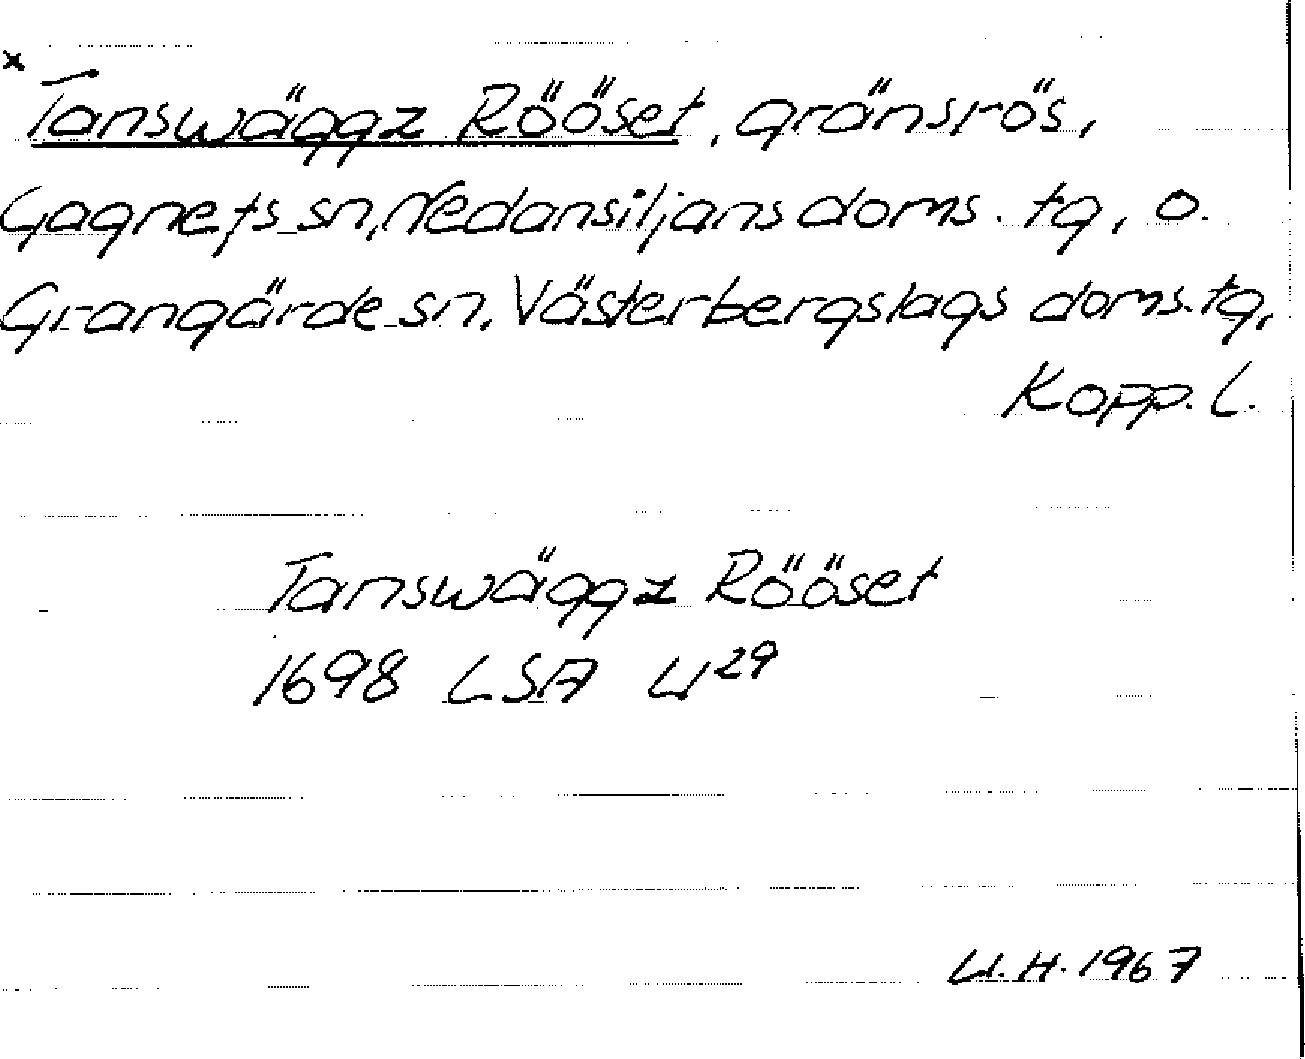 x
Tanswäggz Rööset, gränsrös,
Gagnefs sn, Nedansiljans doms. tg, o.
Grangärde sn, Västerbergslags doms. tg,
Kopp. l.
Tanswäggz Rööset
1698 LSA U29
U.H. 1967